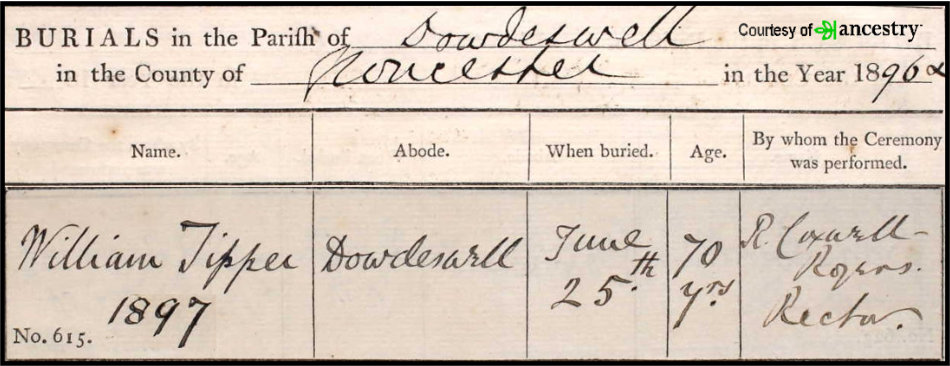 BURIALS in the Parish of Dowdeswell
Courtesy of ancestry
in the County of Gloucester in the Year 1896 &
Name. Abode. When buried. Age. By whom the Ceremony was performed.
William Tipper
1897
No. 615.
Dowdeswell
June
25th
70
yrs
R. Coxwell-
Rogers.
Rector.